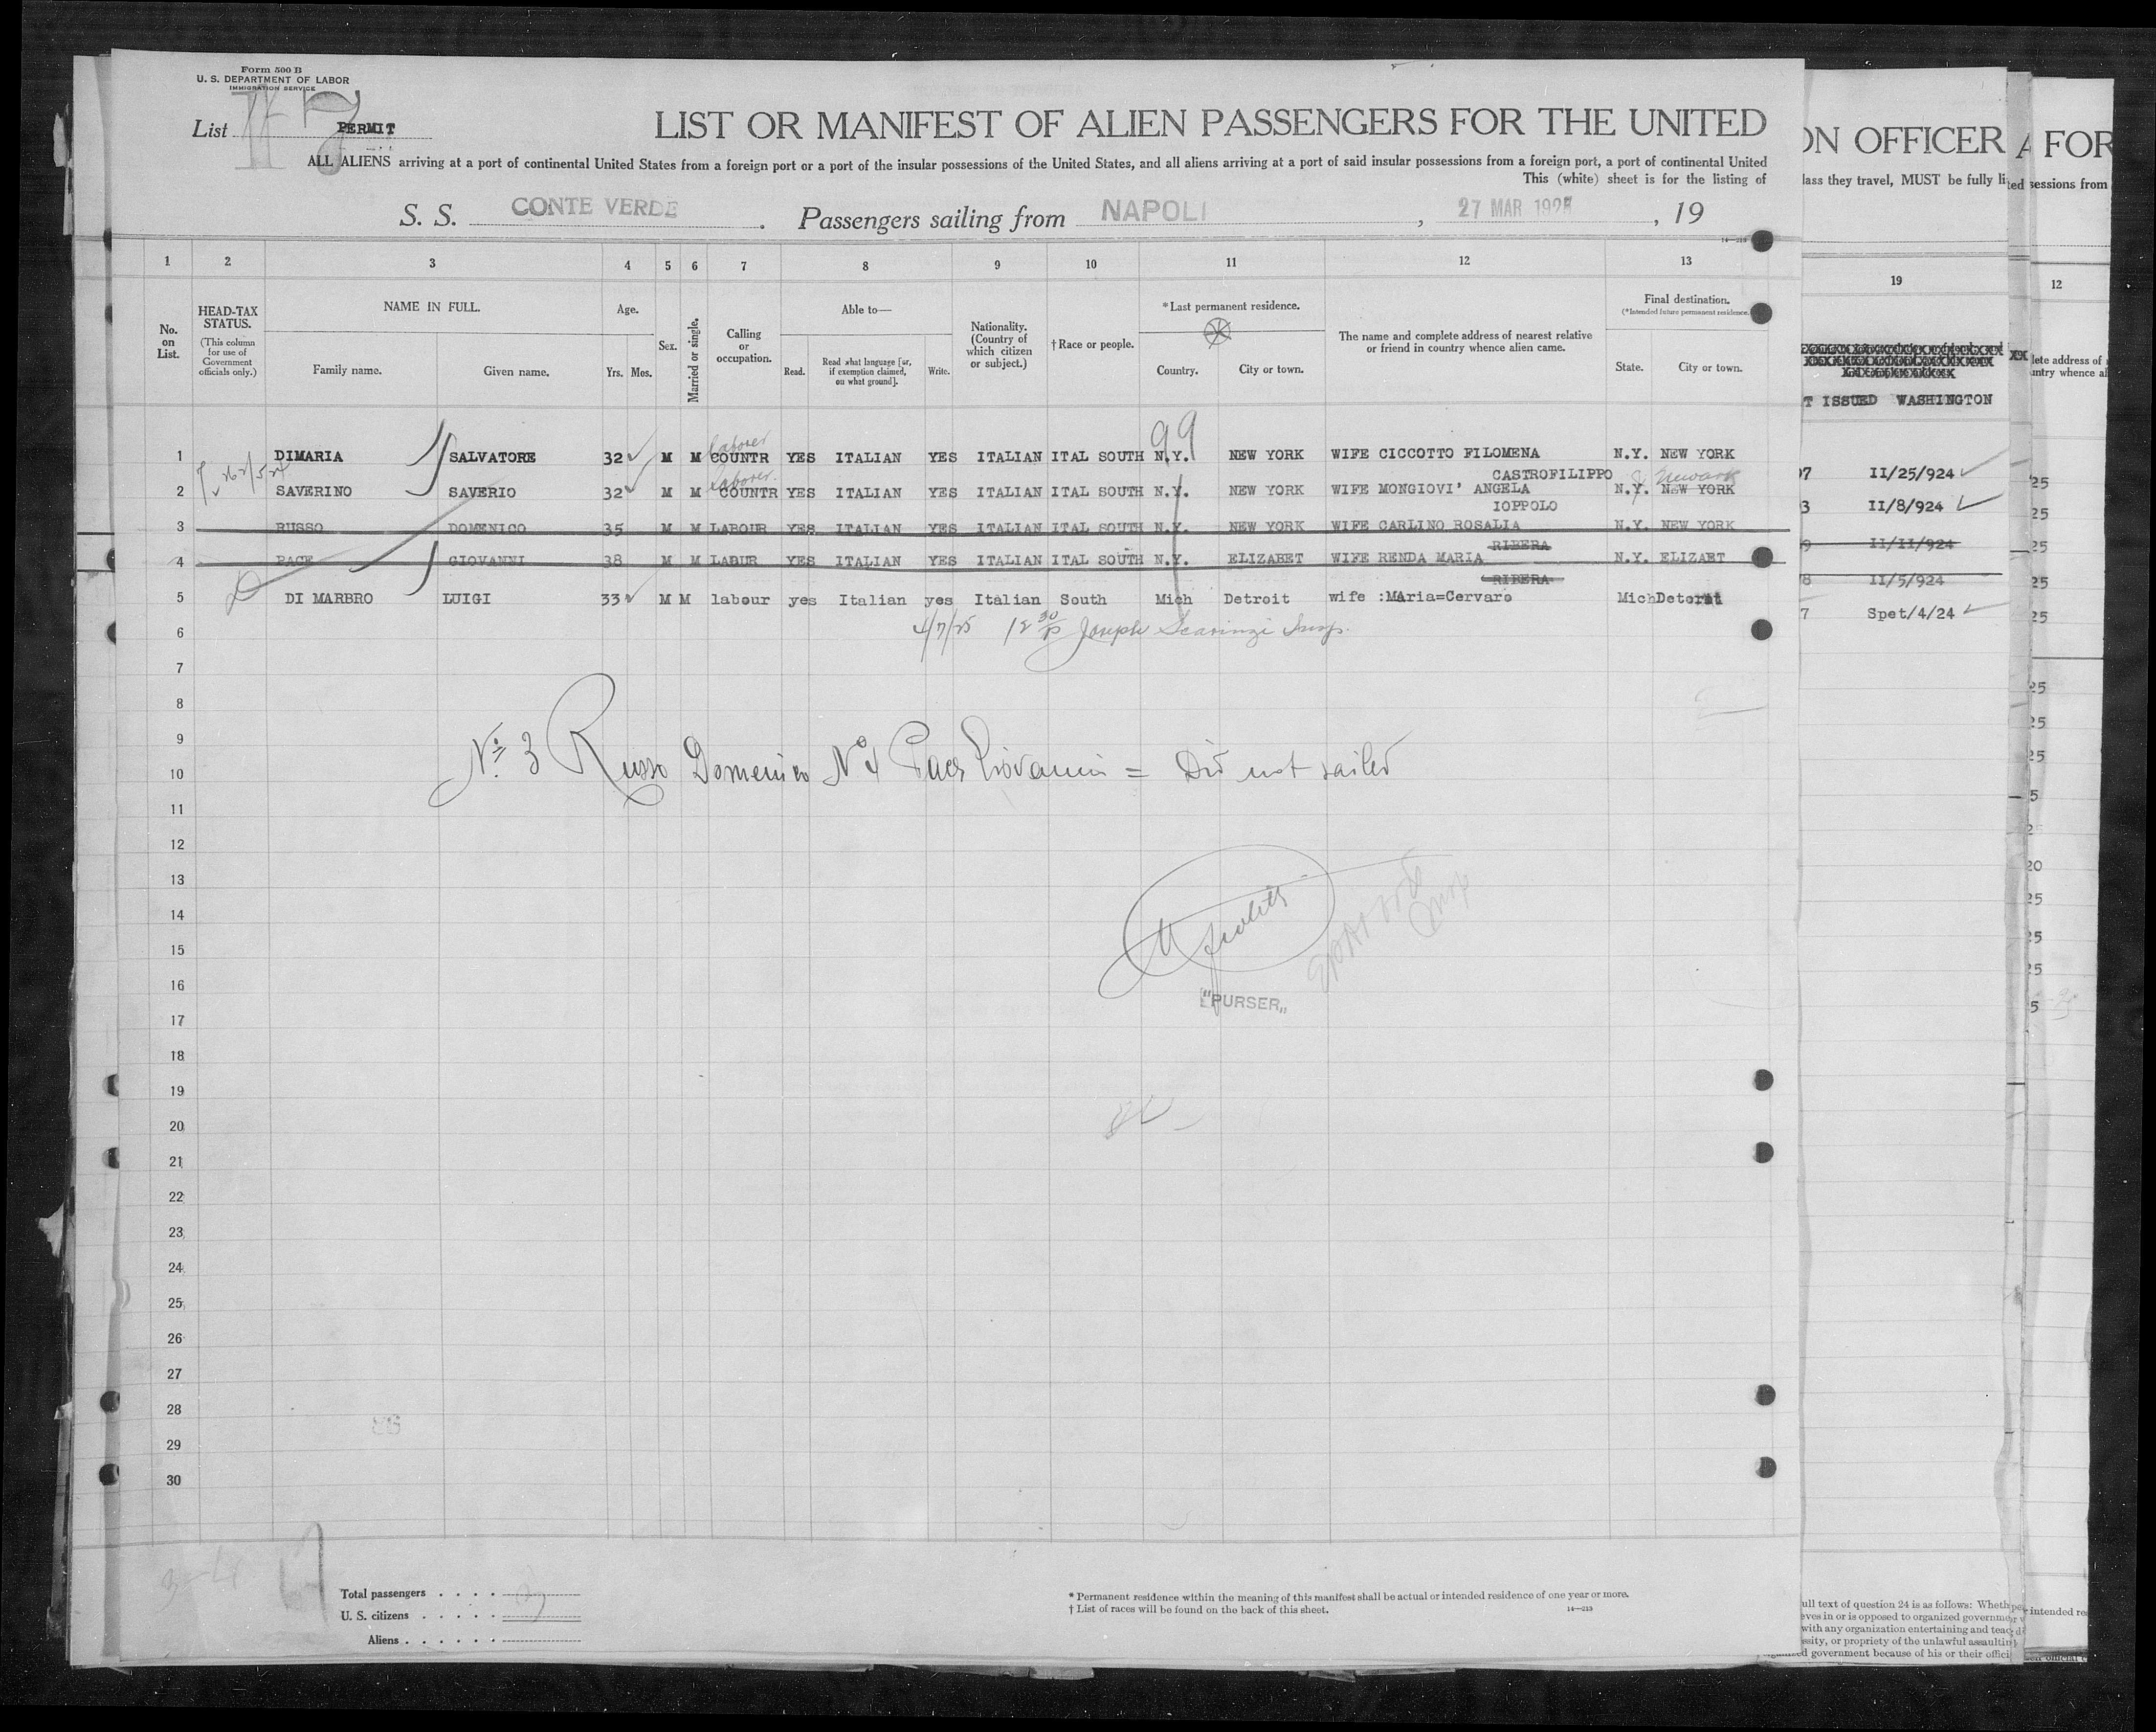 Form 500 B
U. S. DEPARTMENT OF LABOR
IMMIGRATION SERVICE
List PERMIT
LIST OR MANIFEST OF ALIEN PASSENGERS FOR THE UNITED
ALL ALIENS arriving at a port of continental United States from a foreign port or a port of the insular possessions of the United States, and all aliens arriving at a port of said insular possessions from a foreign port, a port of continental United
This (white) sheet is for the listing of
S. S. CONTE VERDE. Passengers sailing from NAPOLI, 27 MAR 192, 19
14—213
1 2 3 4 5 6 7 8 9 10 11 12 13
No. on List.
HEAD-TAX STATUS.
(This column for use of Government officials only.)
NAME IN FULL.
Family name. Given name.
Age.
Yrs. Mos.
Sex.
Married or single.
Calling or occupation.
Able to—
Read. Read what language [or, if exemption claimed, on what ground]. Write.
Nationality. (Country of which citizen or subject.)
†Race or people.
*Last permanent residence.
Country. City or town.
The name and complete address of nearest relative or friend in country whence alien came.
Final destination.
(*Intended future permanent residence.)
State. City or town.
99
Laborer
1 DIMARIA SALVATORE 32 M M COUNTR YES ITALIAN YES ITALIAN ITAL SOUTH N.Y. NEW YORK WIFE CICCOTTO FILOMENA N.Y. NEW YORK
Laborer CASTROFILIPPO Newark
2 SAVERINO SAVERIO 32 M M COUNTR YES ITALIAN YES ITALIAN ITAL SOUTH N.Y. NEW YORK WIFE MONGIOVI' ANGELA N.Y. NEW YORK
IOPPOLO
3 RUSSO DOMENICO 35 M M LABOUR YES ITALIAN YES ITALIAN ITAL SOUTH N.Y. NEW YORK WIFE CARLINO ROSALIA N.Y. NEW YORK
RIBERA
4 PACE GIOVANNI 38 M M LABUR YES ITALIAN YES ITALIAN ITAL SOUTH N.Y. ELIZABET WIFE RENDA MARIA N.Y. ELIZABT
RIBERA
5 DI MARBRO LUIGI 33 M M labour yes Italian yes Italian South Mich Detroit wife :MAria=Cervaro Mich
6 4/7/25 Joseph Scaringi Insp.
7
8
9
Nº 3 Russo Domenico Nº 4 Pace Giovanni = Did not sailed
10
11
12
13
14
15
16
"PURSER"
17
18
19
20
21
22
23
24
25
26
27
28
29
30
Total passengers
U. S. citizens
Aliens
* Permanent residence within the meaning of this manifest shall be actual or intended residence of one year or more.
† List of races will be found on the back of this sheet.
14—213
ON OFFICER
lass they travel, MUST be fully li
19
T ISSUED WASHINGTON
07 II/25/924
3 II/8/924
9 II/II/924
8 II/5/924
7 Spet/4/24
ull text of question 24 is as follows: Wheth
eves in or is opposed to organized governme
with any organization entertaining and teac
ssity, or propriety of the unlawful assaultin
d government because of his or their offici
FOR
sessions from
12
lete address of
ntry whence al
25
25
25
25
25
25
25
25
5
20
25
25
25
5
intended re